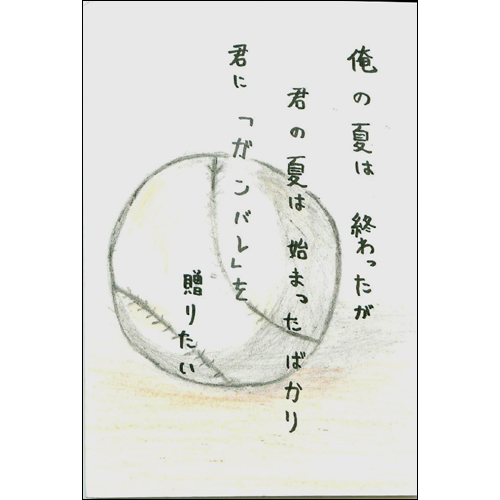 俺の夏は 終わったが
君の夏は 始まったばかり
君に「ガンバレ」を
贈りたい